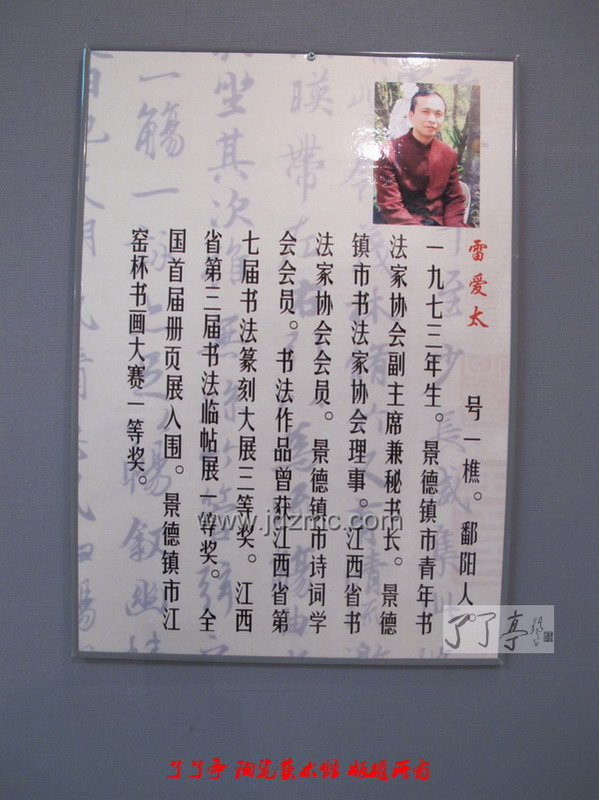 雷爱太
号一樵。鄱阳人
一九七三年生。景德镇市青年书
法家协会副主席兼秘书长。景德
镇市书法家协会理事。江西省书
法家协会会员。景德镇市诗词学
会会员。书法作品曾获江西省第
七届书法篆刻大展三等奖。江西
省第三届书法临帖展一等奖。全
国首届册页展入围。景德镇市江
窑杯书画大赛一等奖。
www.jdzmc.com
了了亭
了了亭 陶瓷艺术馆 版权所有